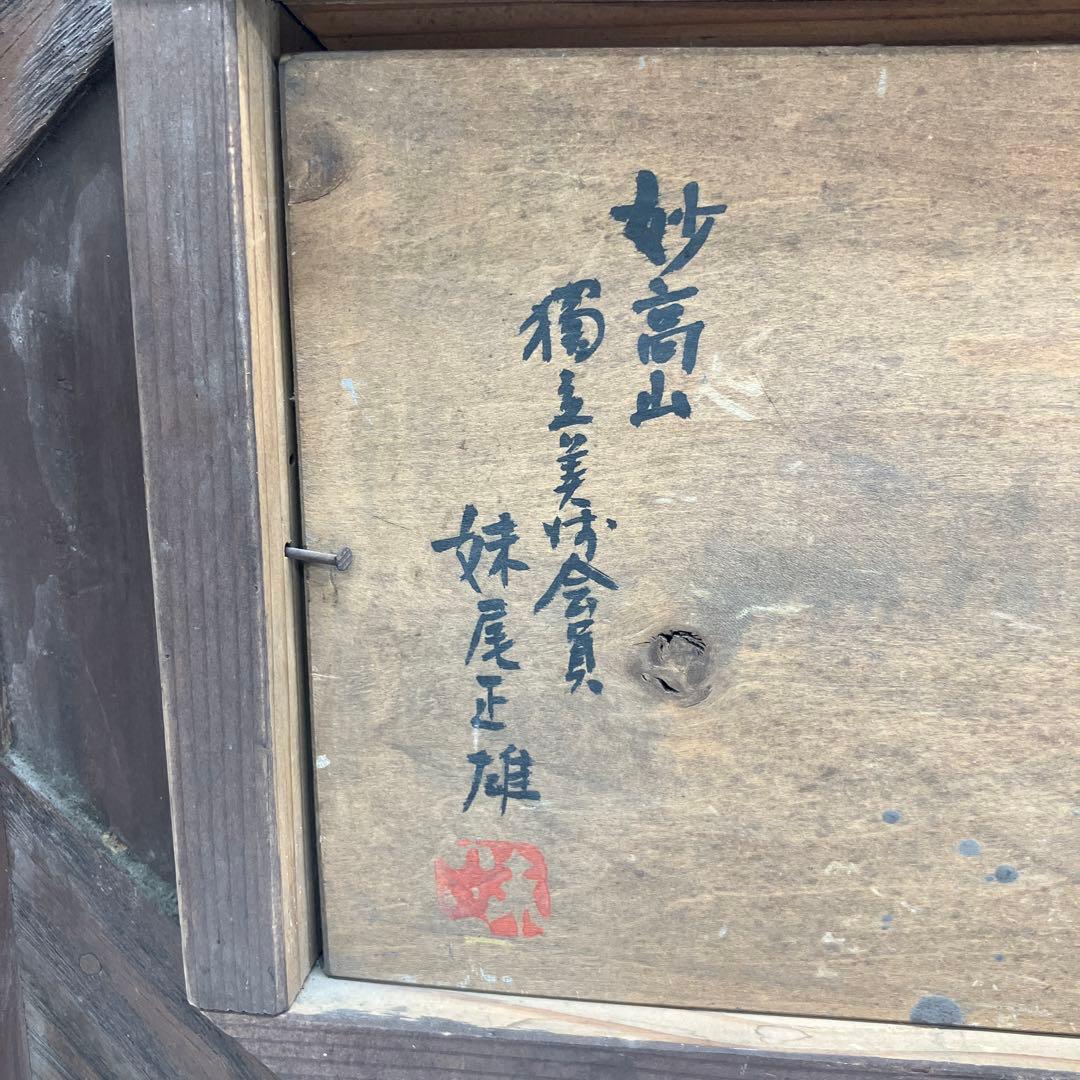 妙高山
獨立美術会員
妹尾正雄